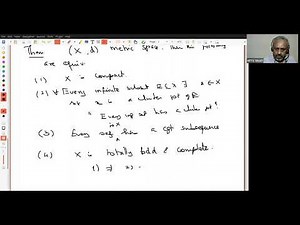 Thm (X, d) metric space. Then the following
are equiv
(1) X is compact.
(2) ∀ Every infinite subset E ⊆ X ∃ x ∈ X
x is a cluster pt of E
" Every inf set has a cluster pt "
in X
(3) Every seq has a cgt subsequence
(4) X is totally bdd & complete.
1) ⇒ 2)